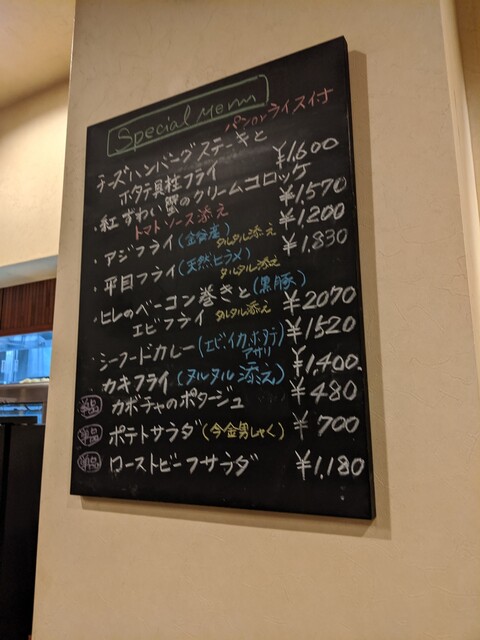 Special Menu
パンorライス付
・チーズハンバーグステーキと
ホタテ貝柱フライ ¥1,600
・紅ずわい蟹のクリームコロッケ
トマトソース添え ¥1,570
・アジフライ(金谷産) タルタル添え ¥1,200
・平目フライ(天然ヒラメ) タルタル添え ¥1,830
・ヒレのベーコン巻きと(黒豚)
エビフライ タルタル添え ¥2070
・シーフードカレー(エビイカホタテアサリ) ¥1520
・カキフライ(タルタル添え) ¥1,400.
カボチャのポタージュ ¥480
ポテトサラダ(今金男しゃく) ¥700
ローストビーフサラダ ¥1,180